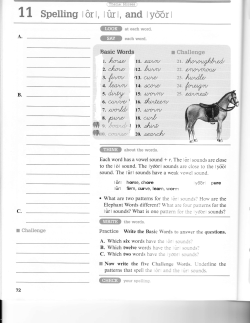 11 Spelling |ôr|, |ûr|, and |yo͝or|
A.
LOOK at each word.
SAY each word.
Basic Words
■ Challenge
1. horse 11.
2. chore 12. burn
3. firm 13. cure
4. learn 14.
5. dirty 15. worn
6. curve 16. thirteen
7. world 17. worn
8. pure 18.
9. 19. skirt
10. 20. search
21. thoroughbred
22. enormous
23. hurdle
24. foreign
25. earnest
B.
THINK about the words.
Each word has a vowel sound + r. The |ôr| sounds are close
to the |ôr| sound. The |yo͝or| sounds are close to the |yo͝o|
sound. The |ûr| sounds have a weak vowel sound.
|ôr| horse, chore |yo͝or| pure
|ûr| firm, curve, learn, worm
• What are two patterns for the |ôr| sounds? How are the
Elephant Words different? What are four patterns for the
|ûr| sounds? What is one pattern for the |yo͝or| sounds?
C.
WRITE the words.
■ Challenge
Practice Write the Basic Words to answer the questions.
A. Which six words have the |ôr| sounds?
B. Which twelve words have the |ûr| sounds?
C. Which two words have the |yo͝or| sounds?
■ Now write the five Challenge Words. Underline the
patterns that spell the |ôr| and the |ûr| sounds.
CHECK your spelling.
72